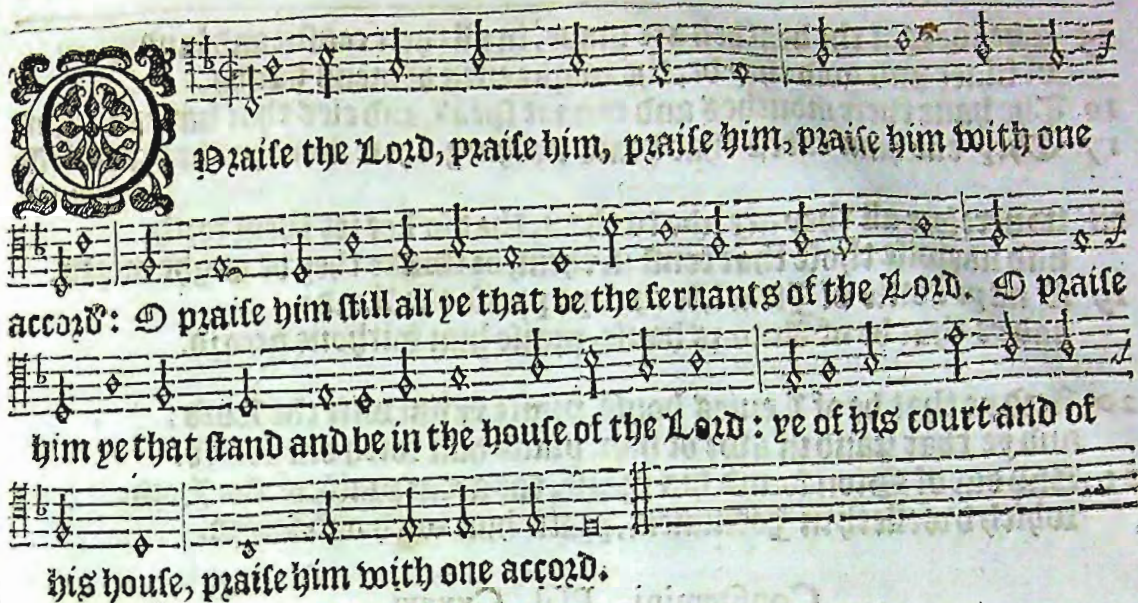 O Praise the Lord, praise him, praise him, praise him with one
accord: O praise him still all ye that be the seruants of the Lord. O praise
him ye that stand and be in the house of the Lord: ye of his court and of
his house, praise him with one accord.